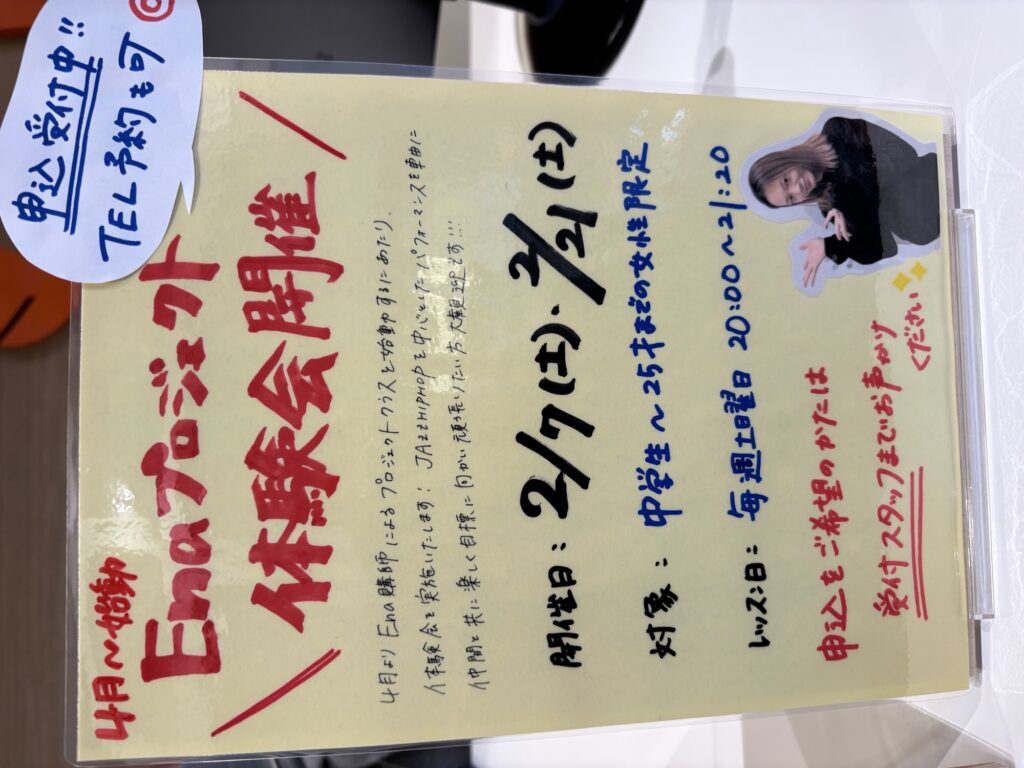 申込受付中!!
TEL予約も可
4月～始動
Enaプロジェクト
体験会開催
4月よりEna講師によるプロジェクトクラスを始動するにあたり、
体験会を実施いたします! JAZZHIPHOPを中心としたパフォーマンスを軸に
仲間と共に楽しく目標に向かい頑張りたい方大歓迎です!!!
開催日: 2/7(土)・2/21(土)
対象: 中学生～25才までの女性限定
レッスン日: 毎週土曜日 20:00～21:20
申込をご希望のかたは
受付スタッフまでお声がけ
ください